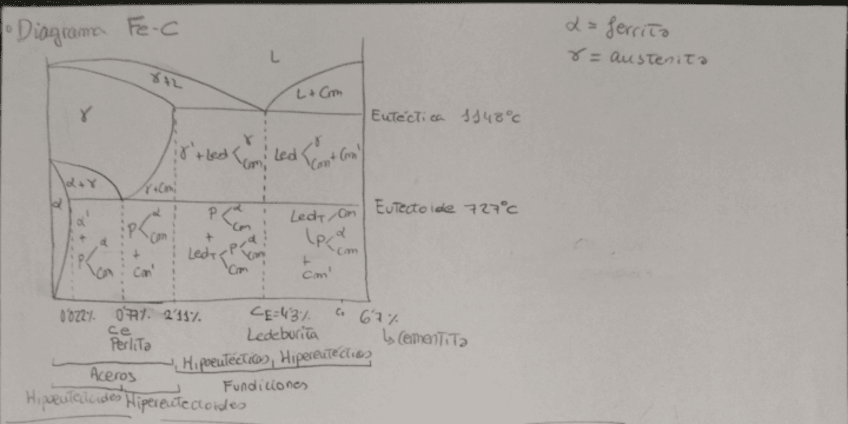 Diagrama Fe-C
α = ferrita
γ = austenita
L
γ+L
L+Cm
γ
Eutéctica 1148°C
γ'+Led < γ Cm
Led < γ Cm + Cm'
α+γ
γ+Cm
α
Eutectoide 727°C
α' + P < α Cm
P < α Cm + Cm'
P < α Cm + LedT < P < α Cm Cm
LedT Cm P < α Cm + Cm'
0'022% 0'77% 2'11% CE=4'3% 6'7%
Ce Ledeburita ↳ Cementita
Perlita
Hipoeutécticas, Hipereutécticas
Aceros Fundiciones
Hipoeutectoides Hipereutectoides